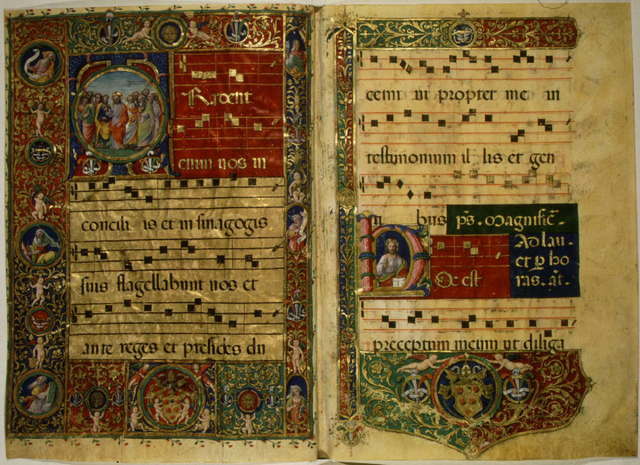 Tradent
enim uos in
concili is et in sinagogis
suis flagellabunt uos et
ante reges et presides du
cemini propter me in
testimonium il lis et gen
ti bus ps. Magnific̄.
Ad lau.
et p ho
ras. añ.
Hoc est
preceptum meum ut diliga